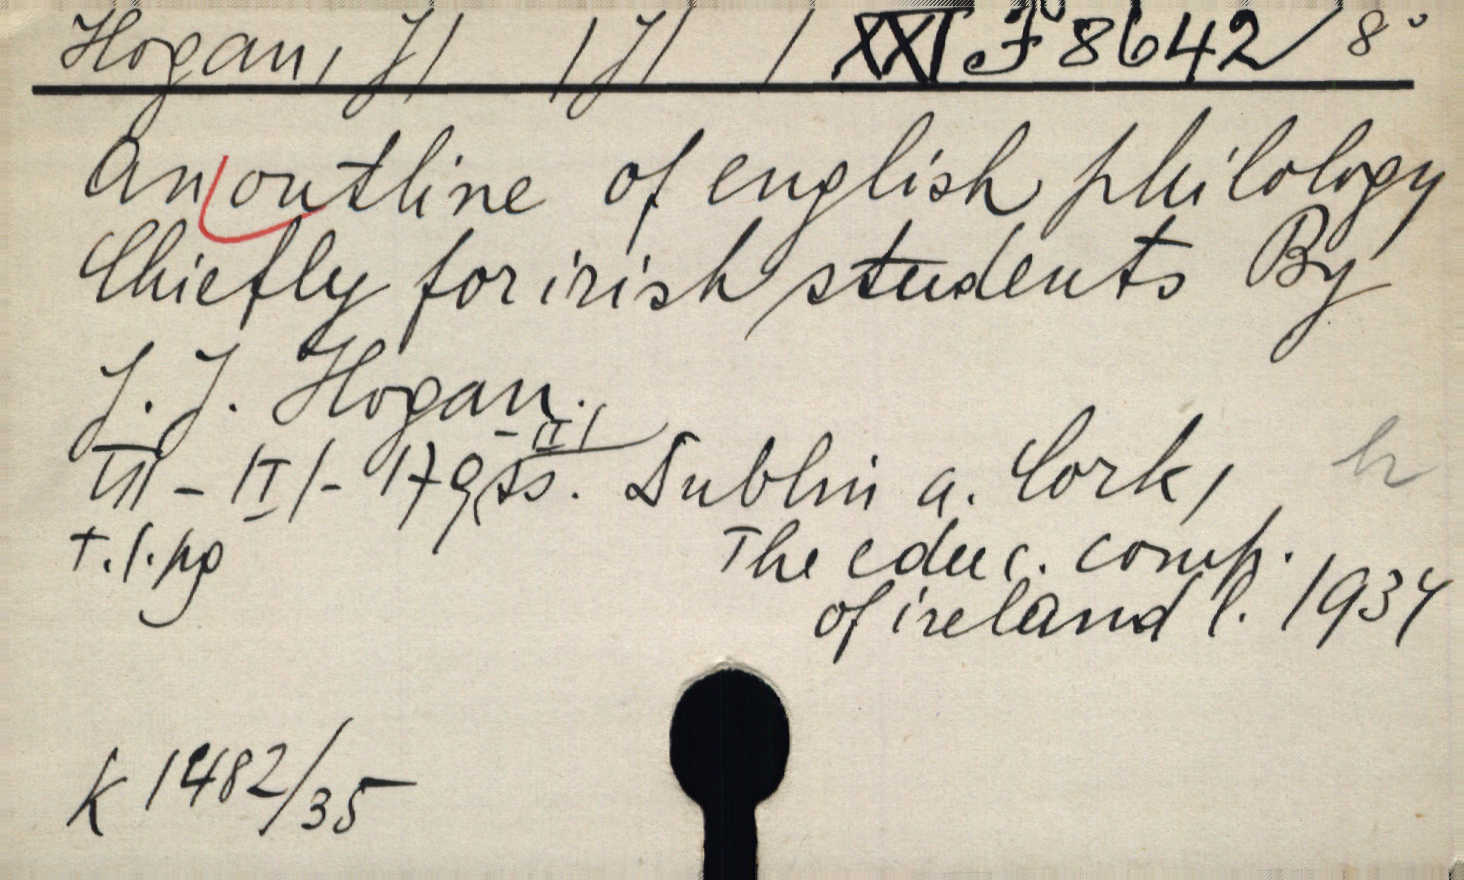 Hogan, J/ /J/ / XXI F 8642/ 8°
An outline of english philology
Chiefly for irish students By
J. J. Hogan.
VII - /I/- 179 ss. - II/ Dublin a. Cork, h
T. l. pg The educ. comp.
of ireland l. 1934
K 1482/35